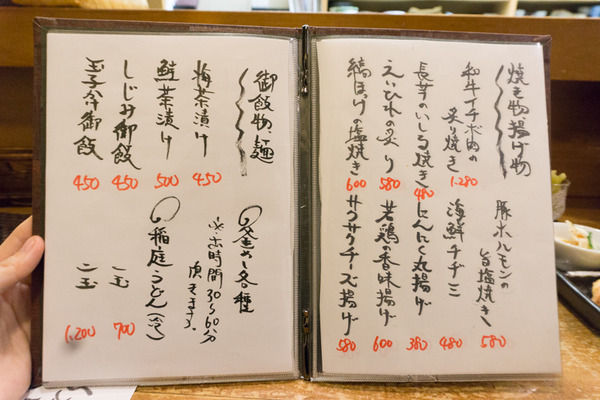 焼き物揚げ物
和牛イチボ肉の
炙り焼き
1.280
長芋のいしる焼き
480
えいひれの炙り
580
縞ほっけの塩焼き
600
豚ホルモンの
旨塩焼き
580
海鮮チヂミ
480
にんにく丸揚げ
380
若鶏の香味揚げ
600
サクサクチーズ揚げ
580
御飯物、麺
梅茶漬け
450
鮭茶漬け
500
しじみ御飯
450
玉子かけ御飯
450
釜めし各種
※お時間30〜60分
頂きます。
稲庭うどん
一玉
700
二玉
1.200